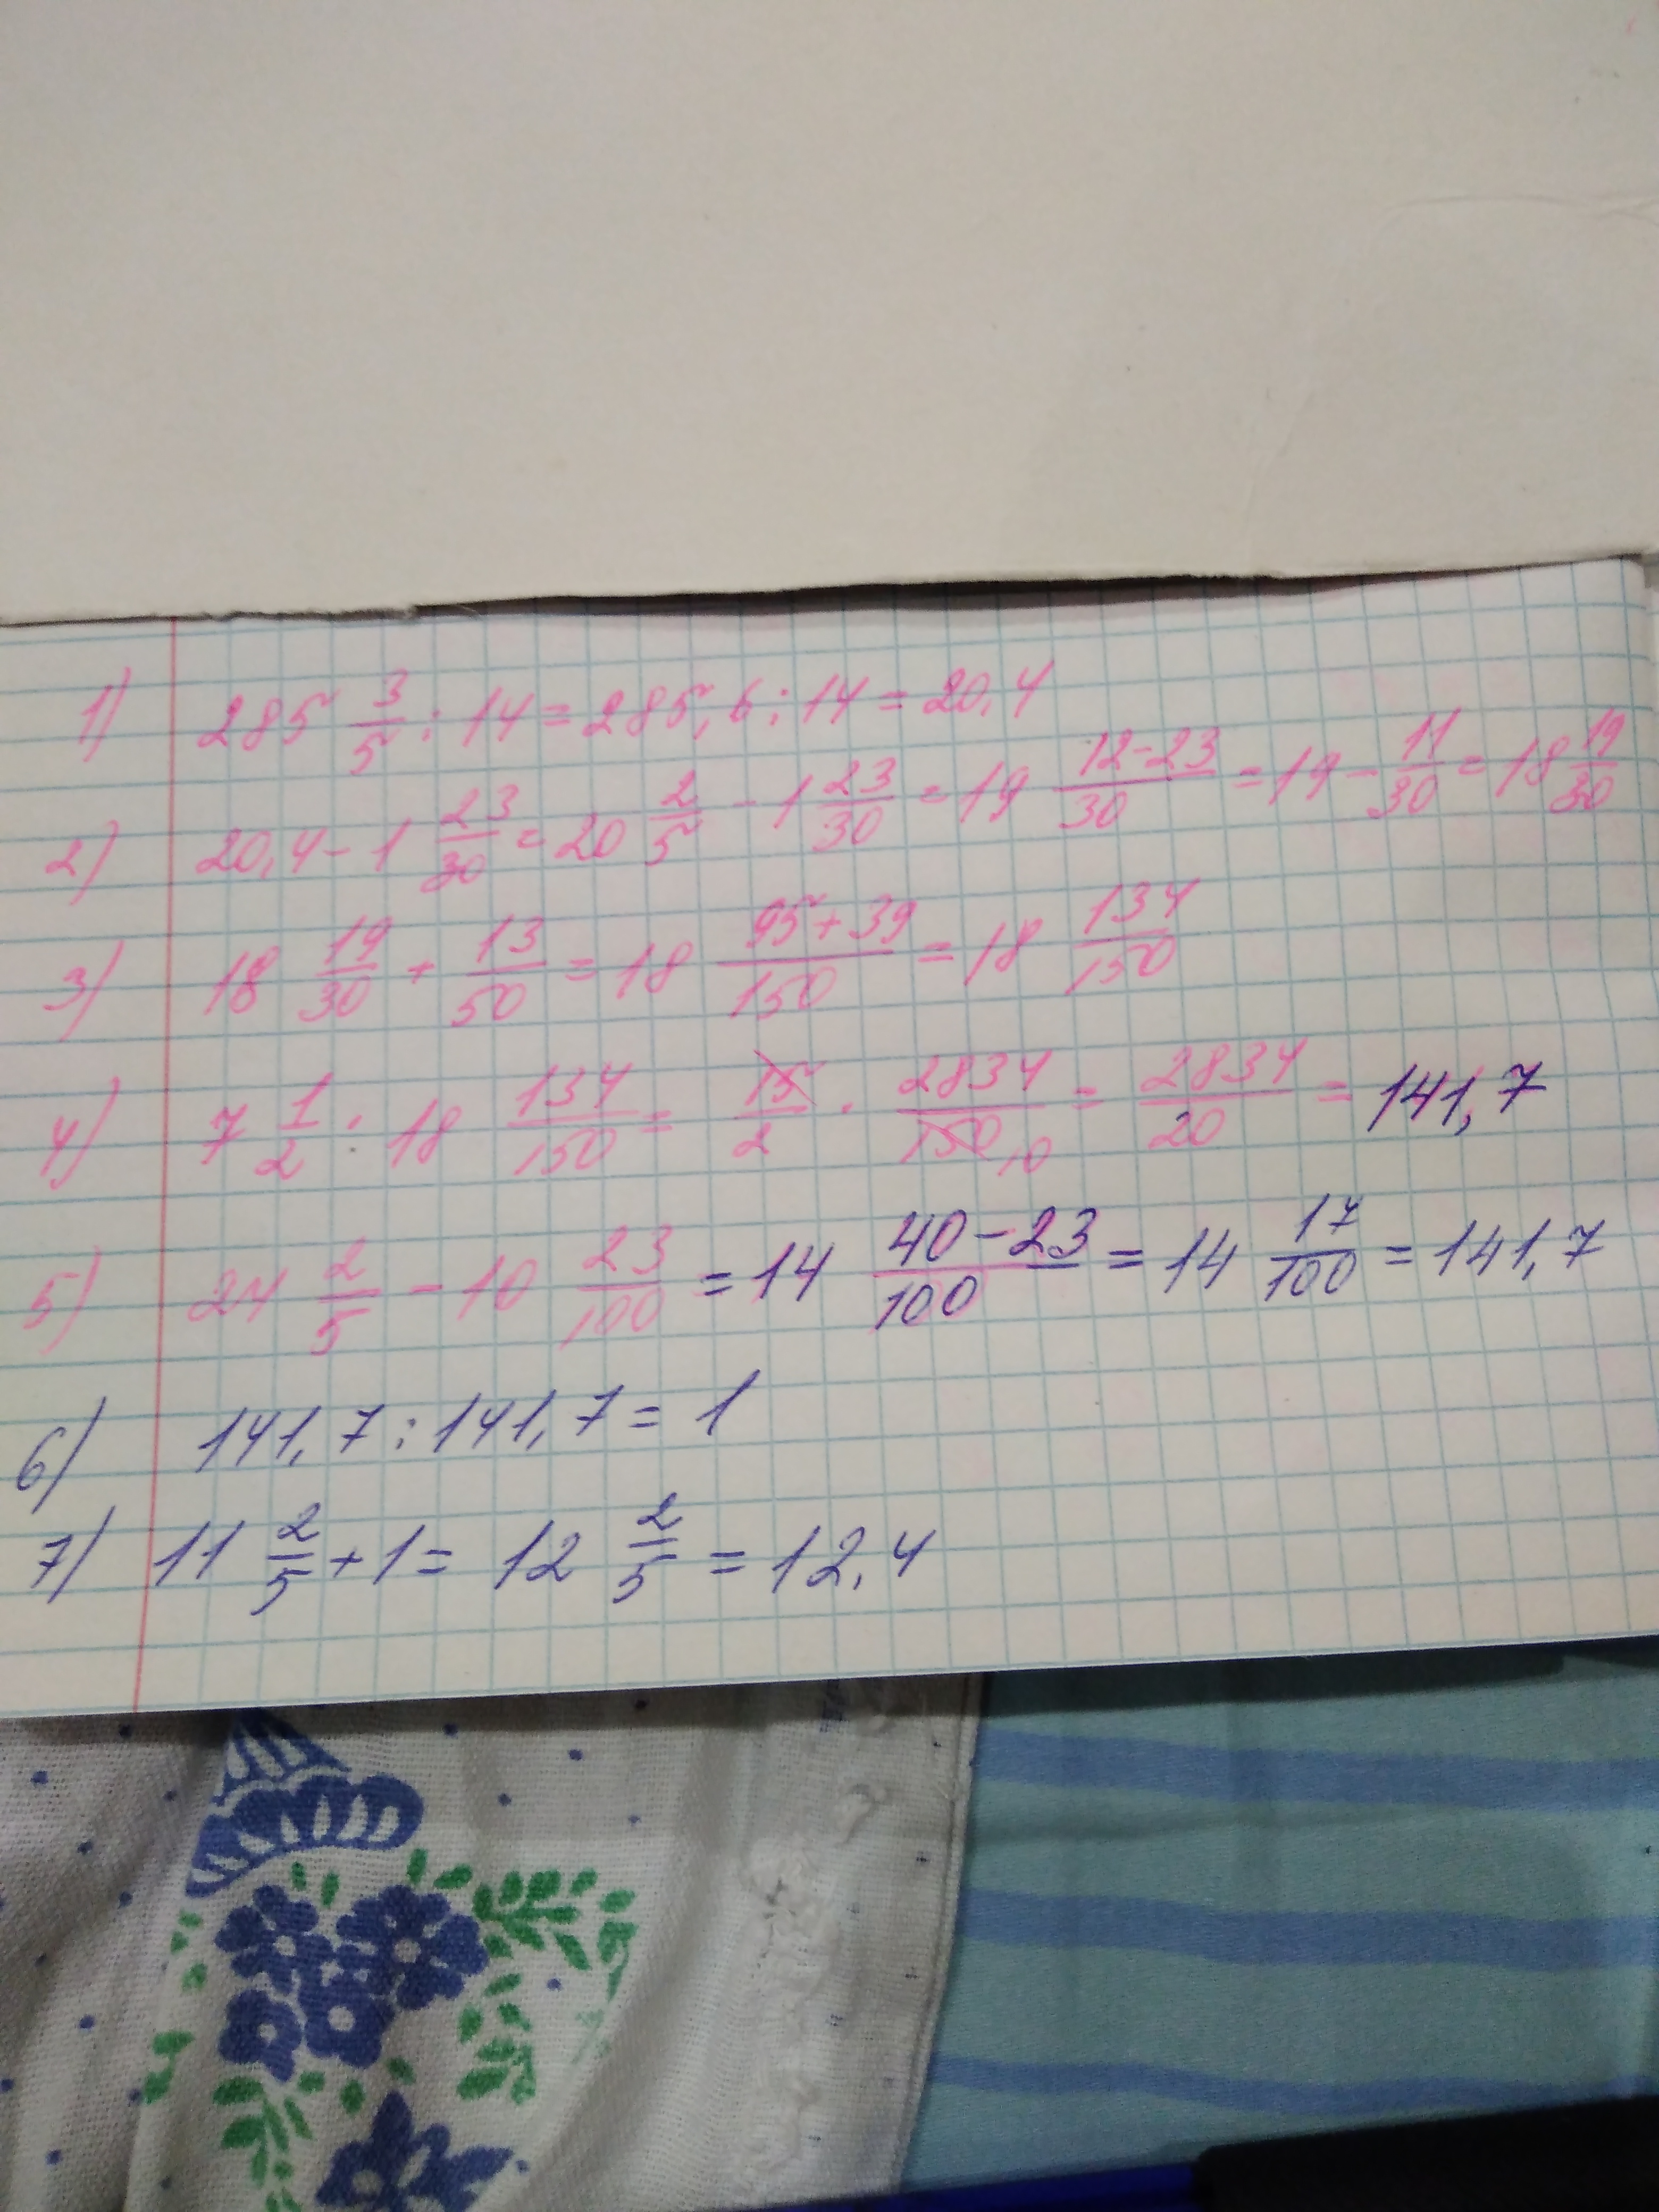 1) 285 3/5 : 14 = 285,6 : 14 = 20,4
2) 20,4 - 1 23/30 = 20 2/5 - 1 23/30 = 19 12-23/30 = 19 - 11/30 = 18 19/30
3) 18 19/30 + 13/50 = 18 95+39/150 = 18 134/150
4) 7 1/2 : 18 134/150 = 15/2 · 2834/150 10 = 2834/20 = 141,7
5) 24 2/5 - 10 23/100 = 14 40-23/100 = 14 17/100 = 141,7
6) 141,7 : 141,7 = 1
7) 11 2/5 + 1 = 12 2/5 = 12,4